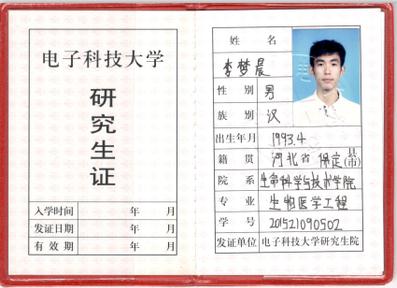 电子科技大学
研究生证
入学时间 年 月
发证日期 年 月
有效期 年 月
姓名
李梦晨
性别 男
族别 汉
出生年月 1993.4
籍贯 河北省保定县(市)
院系 生命科学与技术学院
专业 生物医学工程
学号 201521090502
发证单位 电子科技大学研究生院